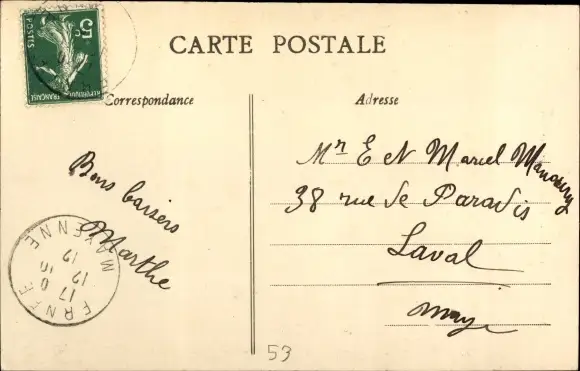 5c
POSTES
REPUBLIQUE
FRANÇAISE
CARTE POSTALE
Correspondance
Adresse
Bons baisers
Marthe
ERNEE
MAYENNE
Mr E et Marcel
38 rue de Paradis
Laval
53